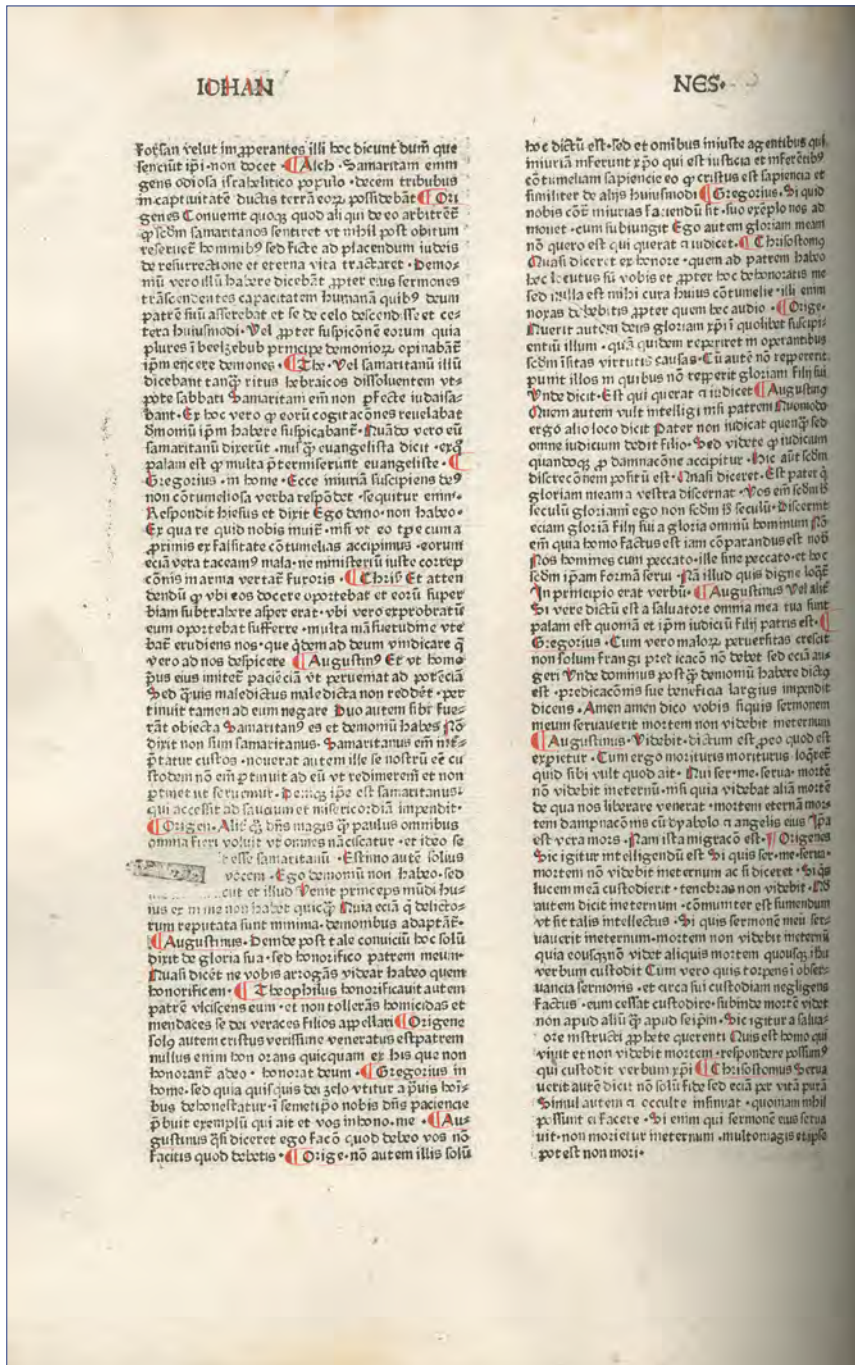 IOHAN
NES·
Forsan velut imꝓperantes illi hoc dicunt dum̄ que
senciūt ip̄i·non docet ·¶Alch ·Samaritam enim
gens odiosa israhelitico populo ·decem tribubus
in captiuitatē ductis terrā eoꝝ possidebāt¶Ori
genes Conuenit quoqꝫ quod ali qui de eo arbitrēt̄
ꝙ scd̄m samaritanos sentiret vt nihil post obitum
reseruet hominibꝰ sed ficte ad placendum iudeis
de resurrectione et eterna vita tractaret ·Demo⸗
niū vero illū habere dicebāt ꝓpter eius sermones
trāscendentes capacitatem humanā quibꝰ deum
patrē suū asserebat et se de celo descendisse et ce⸗
tera huiusmodi ·Vel ꝓpter suspicōnē eorum quia
plures ī beelzebub principe demonioꝝ opinabāt̄
ip̄m eicere demones ·¶The ·Vel samaritanū illū
dicebant tanqꝫ ritus hebraicos dissoluentem vt⸗
pote sabbati Samaritani em̄ non ꝑfecte iudaisa⸗
bant·Ex hoc vero ꝙ eorū cogitacōnes reuelabat
demoniū ip̄m habere suspicabant̄·Quādo vero eū
samaritanū dixerūt ·nusqꝫ euangelista dicit ·exqꝫ
palam est ꝙ multa p̄termiserunt euangeliste ·¶
Gregorius ·in home ·Ecce iniuriā suscipiens deꝰ
non cōtumeliosa verba respōdet ·sequitur enim·
Respondit hiesus et dixit Ego demo·non habeo·
Ex qua re quid nobis inuit̄ ·nisi vt eo tp̄e cum a
ꝓximis ex falsitate cōtumelias accipimus ·eorum
eciā vera taceamꝰ mala·ne ministeriū iuste correp
cōnis in arma vertat̄ furoris ·¶Chrisꝰ Et atten
dendū ꝙ vbi eos docere oportebat et eorū super
biam subtrahere asper erat·vbi vero exprobratū
eum oportebat sufferre ·multa māsuetudine vte
bat̄ erudiens nos·que q̄dem ad deum vindicare ꝙ
vero ad nos despicere ¶Augustinꝰ Et vt homo
prius eius imitet̄ paciēciā vt perueniat ad potēciā
Sed q̄uis maledictus maledicta non reddēt ·per
tinuit tamen ad eum negare Duo autem sibi fue⸗
rāt obiecta Samaritanꝰ es et demoniū habes Nō
dixit non sum samaritanus·Samaritanus em̄ int̄⸗
p̄tatur custos ·nouerat autem ille se nostrū eē cu
stodem nō em̄ ꝑtinuit ad eū vt redimerem et non
ꝑtinet ut seruemur ·Deniqꝫ ip̄e est samaritanus·
qui accessit ad saucium et misericordiā impendit·
¶Origen·Alit̄ qꝫ dn̄s magis qꝫ paulus omnibus
omnia fieri voluit vt omnes nāciscatur ·et ideo se
esse samaritanū ·Estimo autē solius
vocem ·Ego demoniū non habeo·sed
cut et illud Venit princeps mūdi hu⸗
ius et in me non habet quicqꝫ Quia eciā q̄ delicto⸗
rum reputata sunt minima ·demonibus adaptāt̄·
¶Augustinus·Deinde post tale conuiciū hoc solū
dixit de gloria sua ·sed honorifico patrem meum·
Quasi dicēt ne vobis arrogās videar habeo quem
honorificem·¶Theophilus honorificauit autem
patrē vlciscens eum ·et non tollerās homicidas et
mendaces se dei veraces filios appellari¶Origene
solꝰ autem cristus verissime veneratus est patrem
nullus enim honorans quicquam ex his que non
honorant̄ a deo ·honorat deum ·¶Gregorius in
home·sed quia quisquis dei zelo vtitur a p̄uis hoī⸗
bus dehonestatur·ī semetip̄o nobis dn̄s paciencie
p̄buit exemplū qui ait et vos inhono·me ·¶Au⸗
gustinus q̄si diceret ego facō quod debeo vos nō
facitis quod debetis ·¶Orige·nō autem illis solū
hoc dictū est·sed et omībus iniuste agentibus qui
iniuriā inferunt xp̄o qui est iusticia et inferētibꝰ
cōtumeliam sapiencie eo ꝙ cristus est sapiencia et
similiter de alijs huiusmodi¶Gregorius·Si quid
nobis cōt̄ iniurias faciendū sit ·suo exēplo nos ad
monet ·cum subiungit Ego autem gloriam meam
nō quero est qui querat ⁊ iudicet·¶Chrisostomꝰ
Quasi diceret ex honore ·quem ad patrem habeo
hec locutus sū vobis et ꝓpter hoc dehonoratis me
sed nulla est mihi cura huius cōtumelie ·illi enim
noxas debebitis ꝓpter quem hec audio ·¶Orige·
Querit autem deus gloriam xp̄i ī quolibet suscipi⸗
entiū illum ·quā quidem reperiret in operantibus
scd̄m īsitas virtutis causas·Cū autē nō repperent
punit illos in quibus nō repperit gloriam filij sui
Vnde dicit·Est qui querat ⁊ iudicet¶Augustinꝰ
Quem autem vult intelligi nisi patrem Quomodo
ergo alio loco dicit Pater non iudicat quenqꝫ sed
omne iudicium dedit filio·Sed videte ꝙ iudicium
quandoqꝫ ꝓ damnacōne accipitur ·Hic aūt scd̄m
discrecōnem positū est·Quasi diceret·Est pater q̄
gloriam meam a vestra discernat ·Vos em̄ scd̄m h̄
seculū gloriami ego non scd̄m h̄ seculū·discernit
eciam gloriā filij sui a gloria omniū hominum Nō
em̄ quia homo factus est iam cōparandus est nob̄
Nos homines cum peccato·ille sine peccato·et hoc
scd̄m ip̄am formā serui ·Nā illud quis digne loq̄t̄
In principio erat verbū·¶Augustinus Vel alit̄
Si vere dictū est a saluatore omnia mea tua sunt
palam est quoniā et ip̄m iudiciū filij patris est·¶
Gregorius ·Cum vero maloꝝ peruersitas crescit
non solum frangi predicacō nō debet sed eciā au⸗
geri Vnde dominus postqꝫ demoniū habere dictꝰ
est ·predicacōnis sue beneficia largius impendit
dicens ·Amen amen dico vobis siquis sermonem
meum seruauerit mortem non videbit ineternum
¶Augustinus·Videbit·dictum est ꝓ eo quod est
expietur ·Cum ergo morituris moriturus loq̄ret̄
quid sibi vult quod ait ·Qui ser·me·serua·mortē
nō videbit ineternū·nisi quia videbat aliā mortē
de qua nos liberare venerat ·mortem eternā mor⸗
tem dampnacōnis cū dyabolo ⁊ angelis eius Ip̄a
est vera mors ·Nam ista migracō est·¶Origenes
Sic igitur intelligendū est Si quis ser·me·serua·
mortem nō videbit ineternum ac si diceret ·Si qꝫ
lucem meā custodierit ·tenebras non videbit ·Nō
autem dicit ineternum ·cōmuniter est sumendum
vt sit talis intellectus ·Si quis sermonē meū ser⸗
uauerit ineternum·mortem non videbit ineternū
quia eousqꝫ nō videt aliquis mortem quousqꝫ ibi
verbum custodit Cum vero quis torpens ī obser⸗
uancia sermonis ·et circa sui custodiam negligens
factus ·eum cessat custodire ·subinde mortē videt
non apud aliū qꝫ apud seip̄m·Sic igitur a salua⸗
ore instructi ꝓphete querenti Quis est homo qui
viuit et non videbit mortem ·respondere possumꝰ
qui custodit verbum xp̄i¶Chrisostomus Serua
uerit autē dicit nō solū fide sed eciā per vitā purā
Simul autem ⁊ occulte insinuat ·quoniam nihil
possunt ei facere ·Si enim qui sermonē eius serua
uit·non morietur ineternum ·multomagis et ipse
potest non mori·